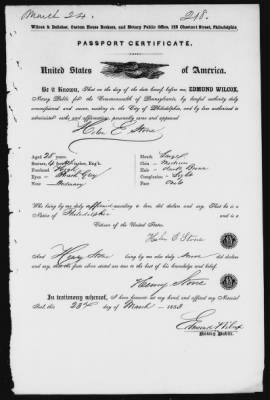 March 24
218.
Wilcox & Dallabor, Custom House Brokers, and Notary Public Office, 125 Chestnut Street, Philadelphia.
PASSPORT CERTIFICATE.
United States of America.
Be it Known, That on the day of the date hereof, before me, EDMUND WILCOX,
Notary Public for the Commonwealth of Pennsylvania, by lawful authority duly
commissioned and sworn, residing in the City of Philadelphia, and by law authorized to
administer oaths and affirmations, personally came and appeared
Helen E Stone
Aged 28 years
Mouth
Stature, 5 feet inches, Eng's
Chin — Medium
Forehead High
Hair — Dark Brown
Eyes — Gray
Complexion — Light
Nose — Ordinary
Face — Oval
Who being by me duly did declare and say, That he is a
Native of Philadelphia and a
Citizen of the United States.
Helen E Stone
And Henry Stone being by me also duly did declare
and say,
Henry Stone
In testimony whereof, I have hereunto set my hand, and affixed my Notarial
Seal, this 23rd day of March 1853
Edmund Wilcox
Notary Public.